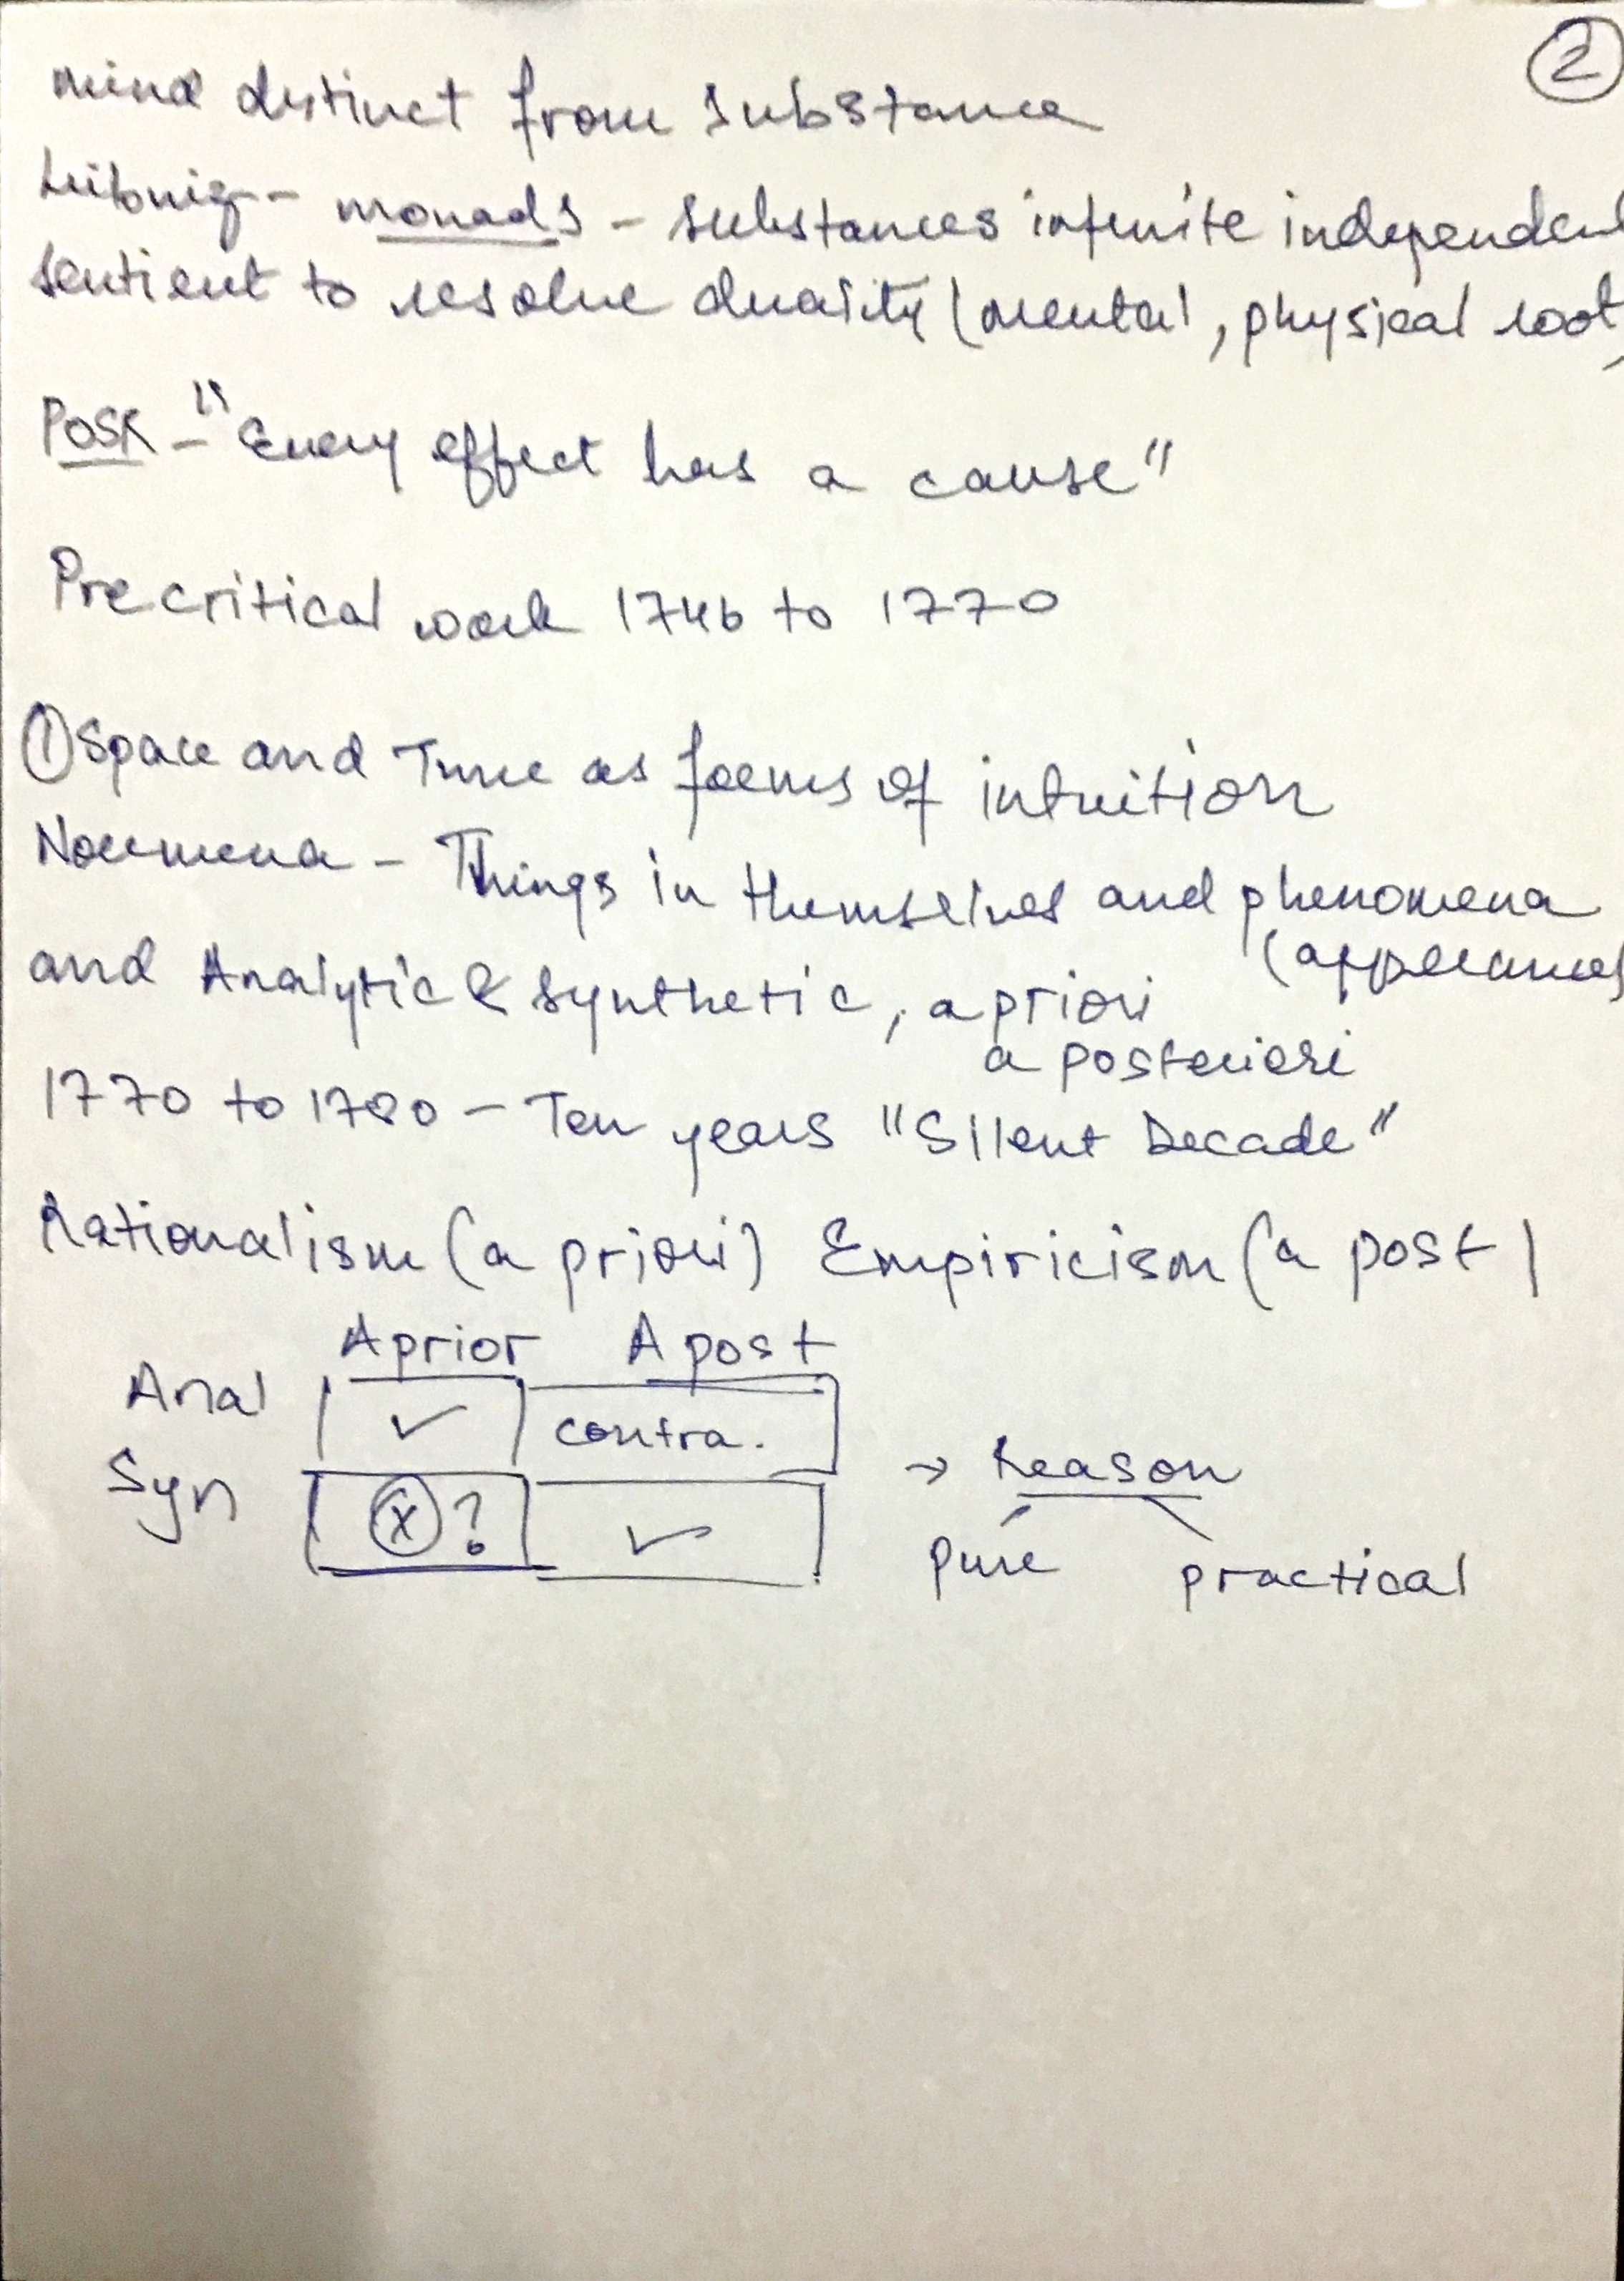 2
mind distinct from substance
Leibniz - monads - substances infinite independent
sentient to resolve duality (mental, physical root)
POSR - "Every effect has a cause"
Pre critical work 1746 to 1770
1 Space and Time as forms of intuition
Noumena - Things in themselves and phenomena
(appearances)
and Analytic & synthetic, a priori
a posteriori
1770 to 1780 - Ten years "Silent Decade"
Rationalism (a priori) Empiricism (a post)
Aprior A post
Anal ✓ contra.
Syn x ? ✓
→ Reason
pure practical